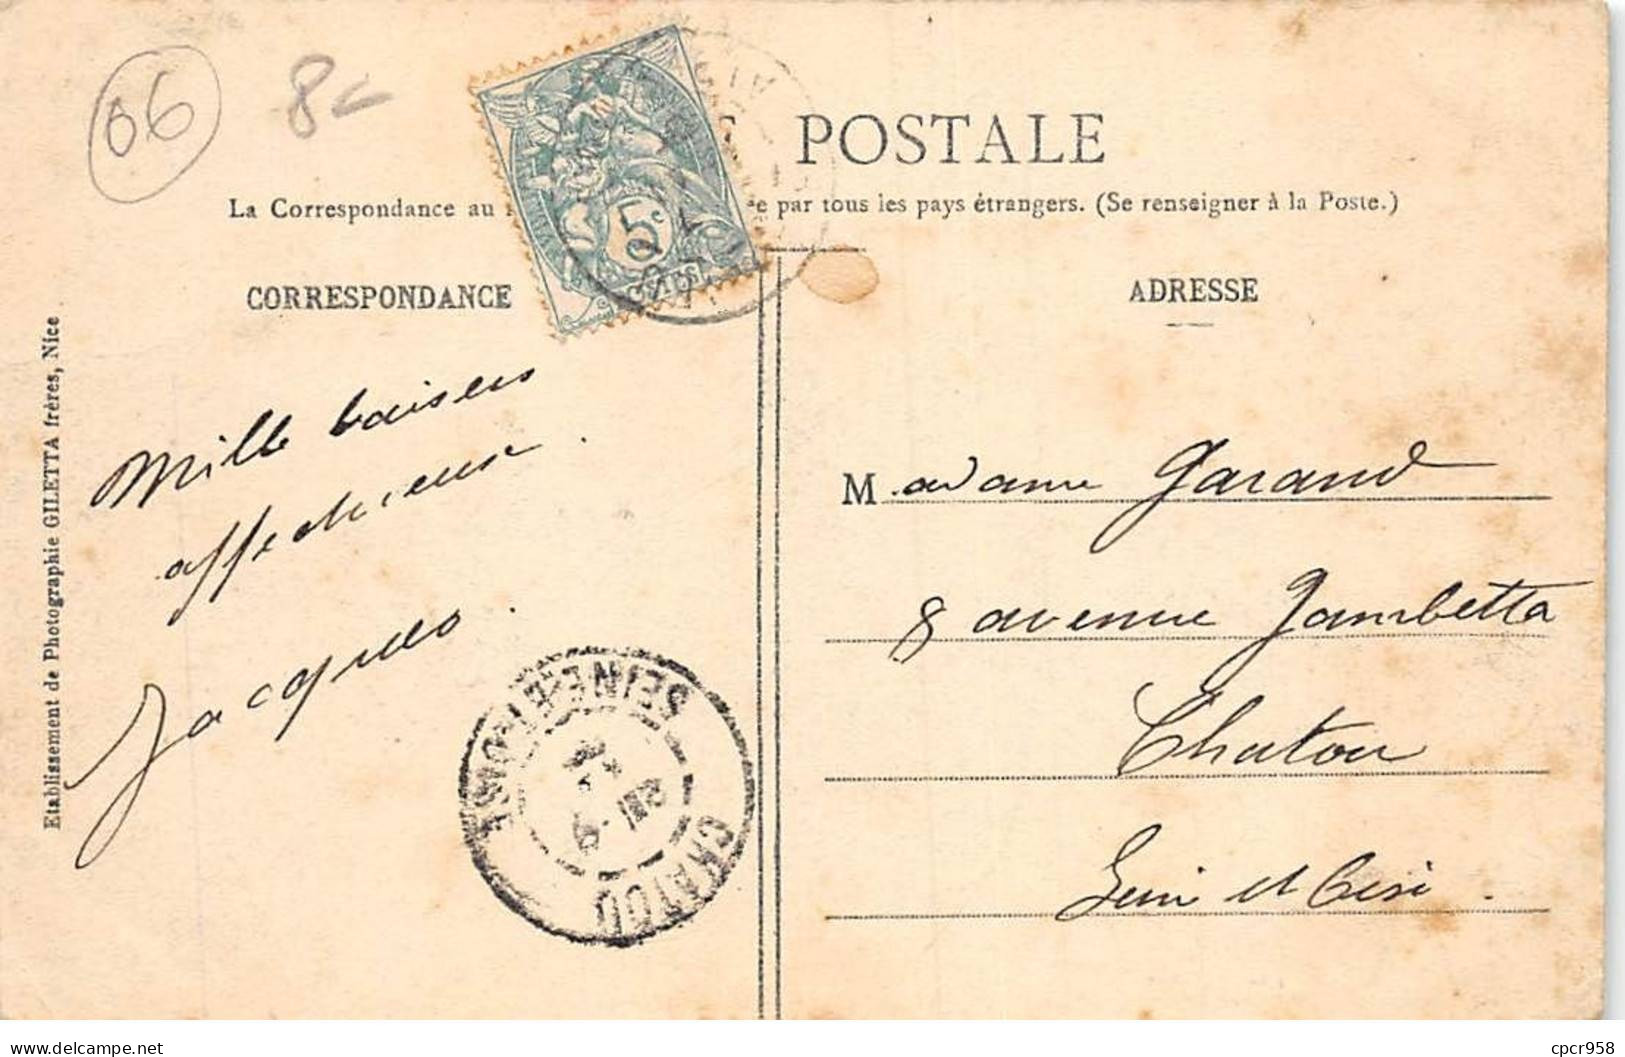 06
8€
POSTALE
La Correspondance au
e par tous les pays étrangers. (Se renseigner à la Poste.)
CORRESPONDANCE
ADRESSE
Mille baisers
affectueux.
Jacques.
Madame Garand
8 avenue Gambetta
Chatou
Seine et Oise.
5c
POSTES
CHATOU
SEINE-ET-OISE
Etablissement de Photographie GILETTA frères, Nice
delcampe.net
cpcr958